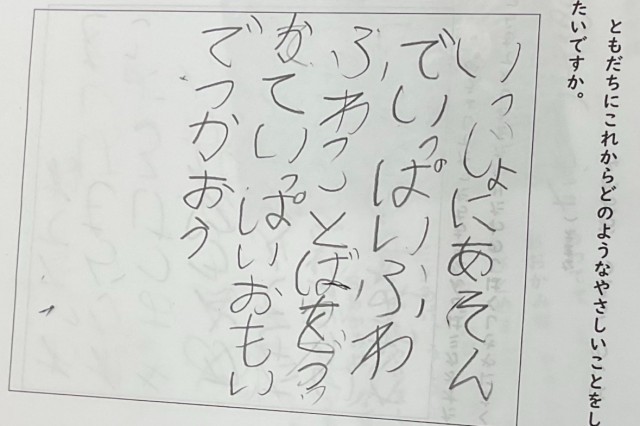 ともだちにこれからどのようなやさしいことをし
たいですか。
いっしょにあそん
でいっぱいふわ
ふわっことばを
かていっぱいおもい
でつかおう